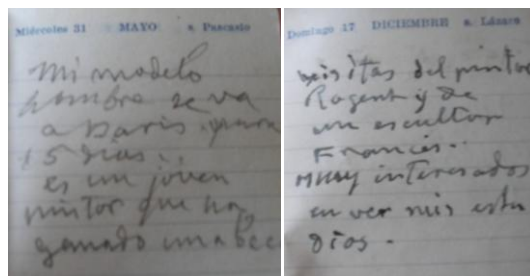 Miércoles 31 MAYO s. Pascasio
Mi modelo
hombre se va
a Paris para
15 dias..
es un joven
pintor que ha
ganado una bec
Domingo 17 DICIEMBRE s. Lázaro
visitas del pintor
Rogent y de
un escultor
Francés..
Muy interesados
en ver mis estu
dios.-